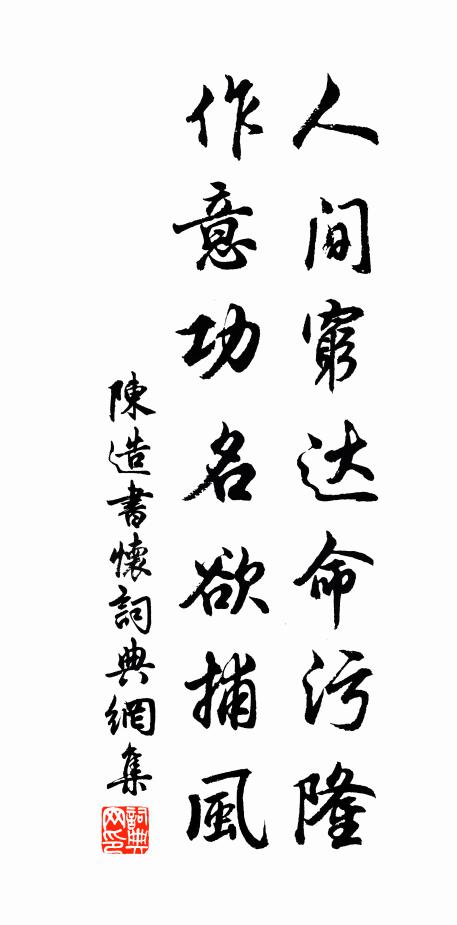 人间窮达命污隆
作意功名欲捕風
陳造書懷詞典網集
詞典网印